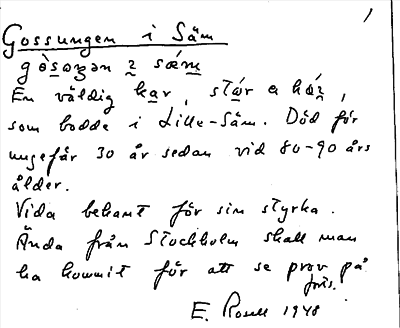 1
Gossungen i Säm
En väldig kar, stár a kár,
som bodde i Lille-Säm. Död för
ungefär 30 år sedan vid 80-90 års
ålder.
Vida bekant för sin styrka.
Ända från Stockholm skall man
ha kommit för att se prov på
E. Rosell 1948